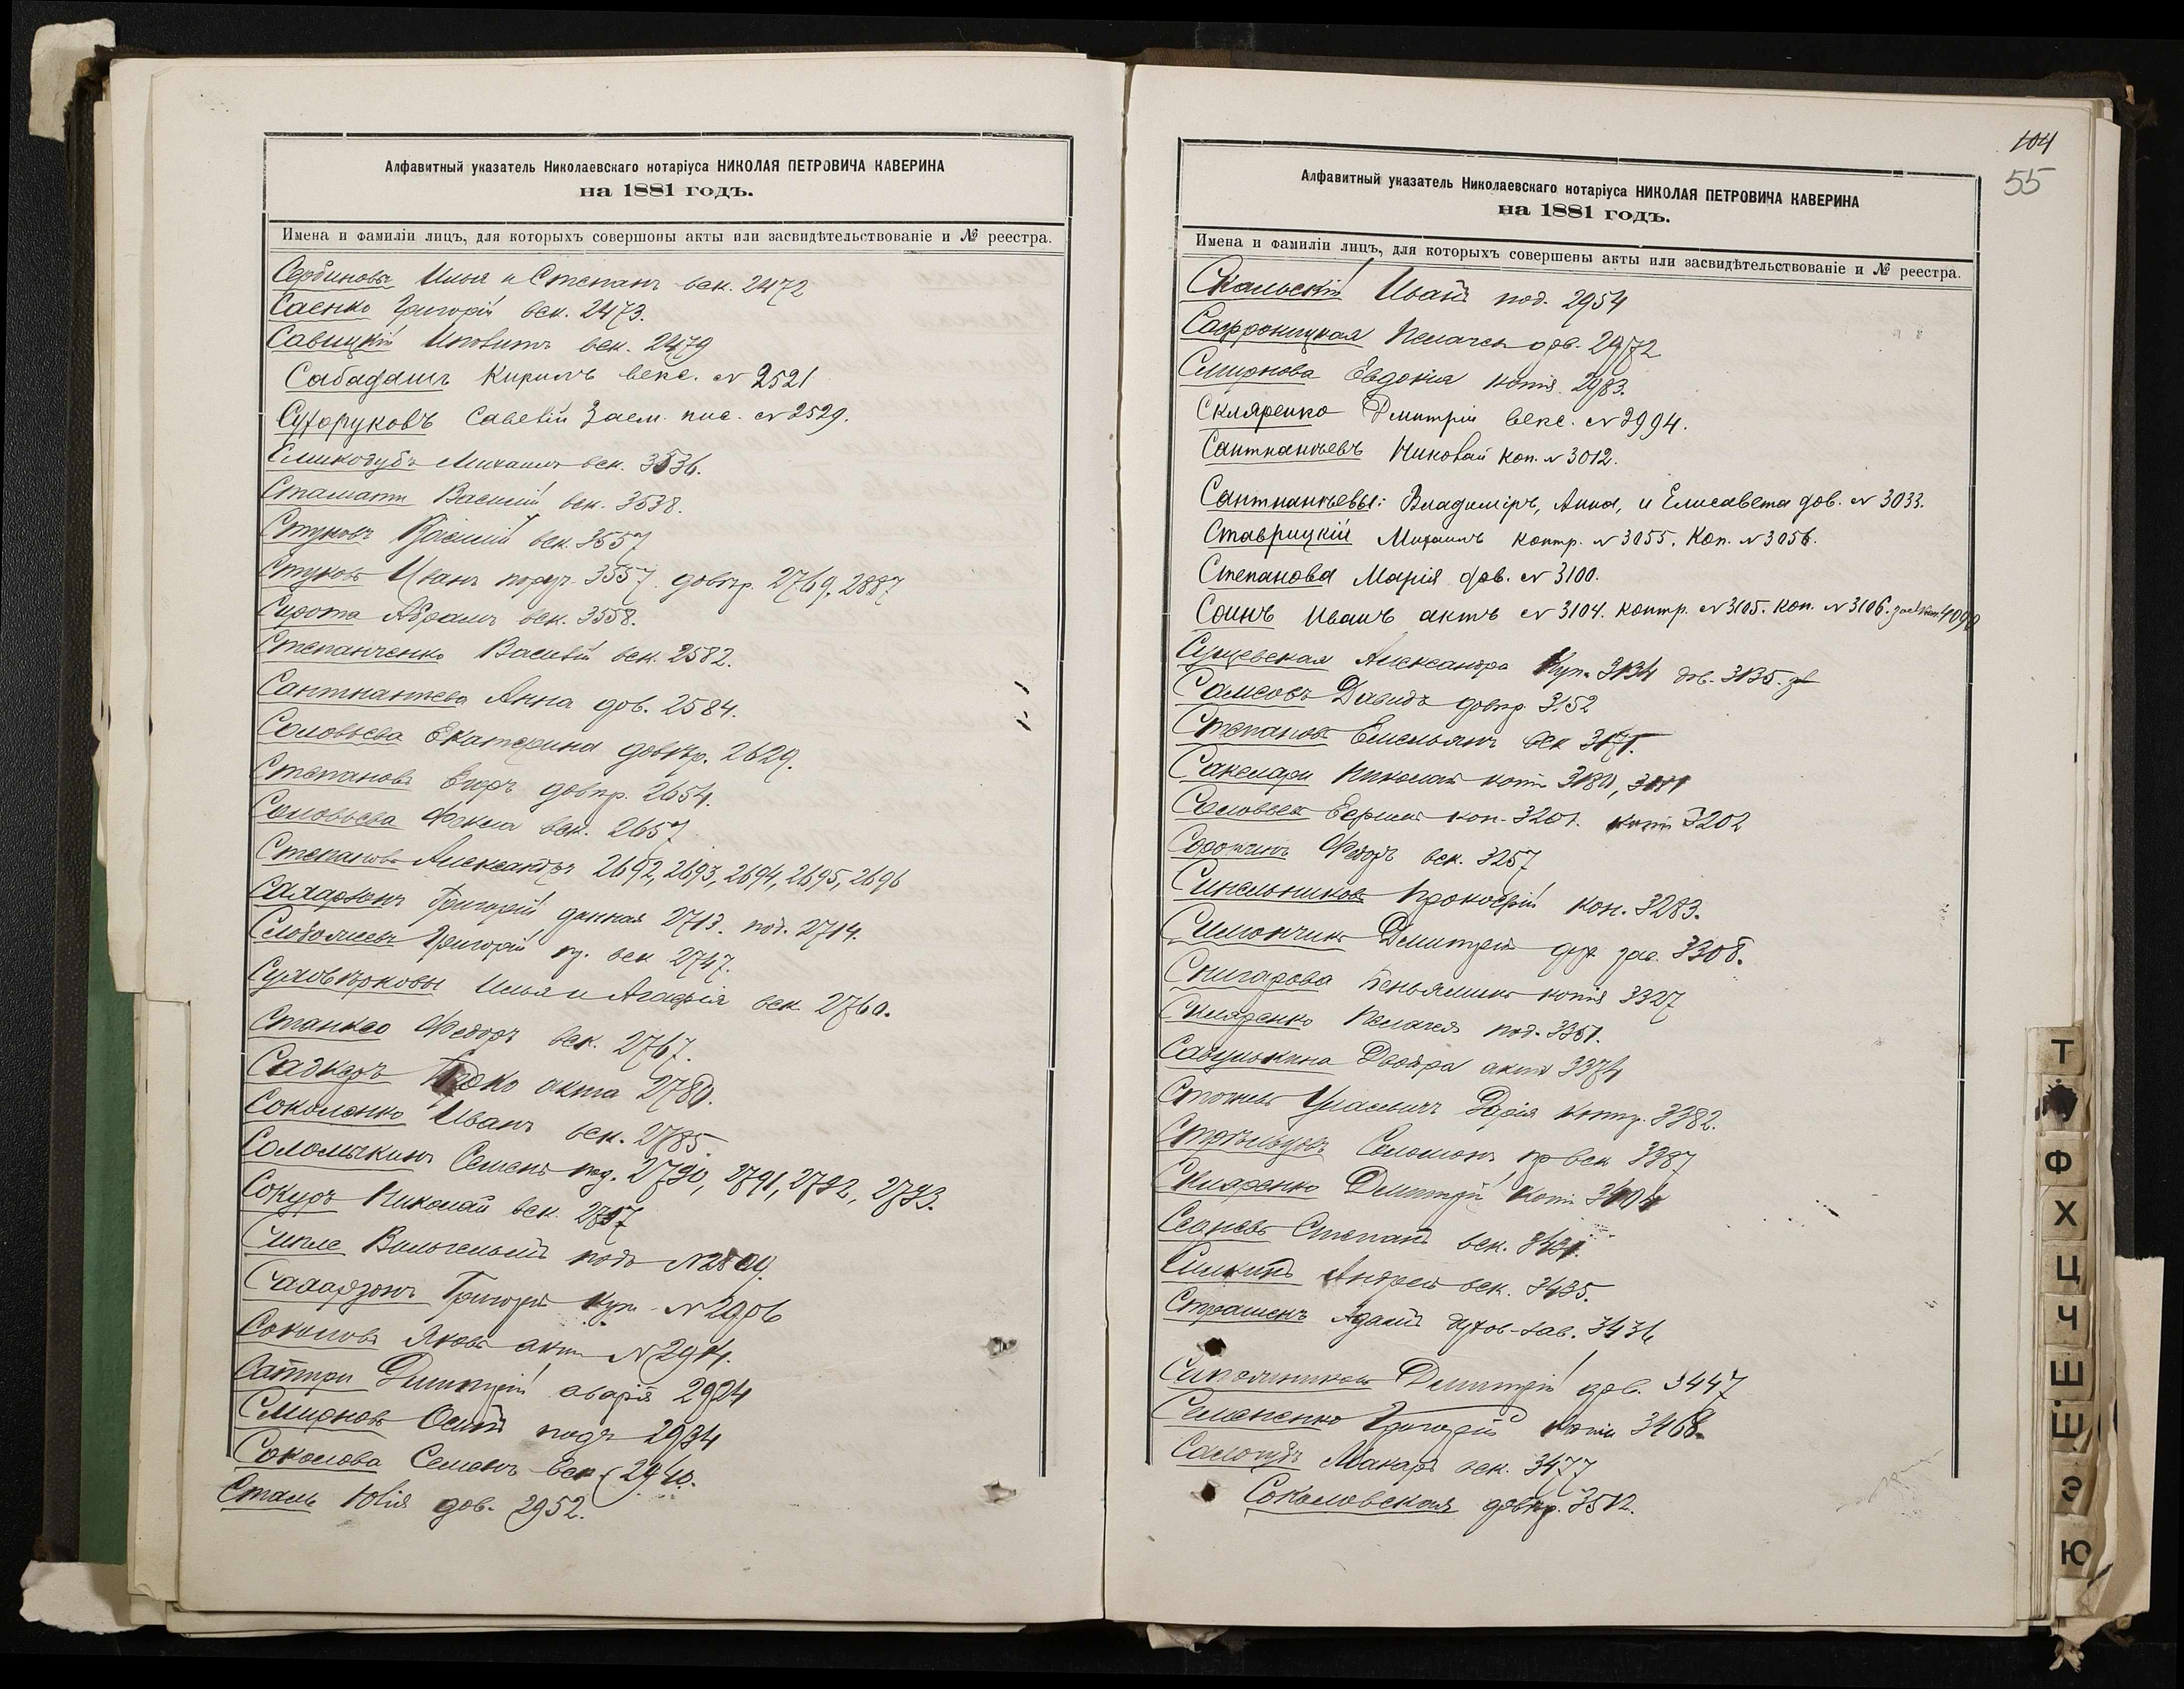 Алфавитный указатель Николаевскаго нотаріуса НИКОЛАЯ ПЕТРОВИЧА КАВЕРИНА
на 1881 годъ.
Имена и фамиліи лицъ, для которыхъ совершоны акты или засвидѣтельствованіе и № реестра.
Сербиновы Илья и Степанъ век. 2472
Саенко Григорій век. 2473.
Савицкій век. 2479
Сабадашъ Кирилъ векс. № 2521
Сухоруковъ Савелій Заем. пис. № 2529.
Михаилъ век. 3536.
Стамати Василій век. 3538.
Стуковъ Василій век. 3557
Стуковъ Иванъ поруч. 3557. довѣр. 2769, 2887
Сирота Абрамъ век. 3558.
Степанченко Василій век. 2582.
Сантнантьева Анна дов. 2584.
Соловьева Екатерина довѣр. 2629.
Степановъ довѣр. 2654.
Соловьева Фекла век. 2657
Степановъ Александръ 2692, 2693, 2694, 2695, 2696
Сахарзонъ Григорій данная 2713. под. 2714.
Григорій век 2747.
Илья и Агафія век 2760.
Станко Федоръ век. 2767.
Садкеръ акта 2780.
Соколенко Иванъ век. 2785
Соломыкинъ Семенъ под. 2790, 2791, 2792, 2793.
Сокуръ Николай век.
Сипле Вильгельмъ подъ №
Сахарзонъ Григорій Куп. № 2906
Соколовъ Яковъ акт №
Сатири Дмитрій аварія 2924
Смирновъ Осипъ подъ 2934
Соколова Семенъ век 2940.
Сталь Юлія дов. 2952.
104
55
Алфавитный указатель Николаевскаго нотаріуса НИКОЛАЯ ПЕТРОВИЧА КАВЕРИНА
на 1881 годъ.
Имена и фамиліи лицъ, для которыхъ совершены акты или засвидѣтельствованіе и № реестра.
Скальскій Иванъ под. 2954
Сафроницкая Пелагея дов. 2972
Смирнова Евдокія копія 2983.
Скляренко Дмитрій векс. № 2994.
Сантнантьевъ Николай Коп. № 3012.
Сантнантьевы: Владиміръ, Анна, и Елисавета дов. № 3033.
Ставрицкій Михаилъ контр. № 3055. Коп. № 3056.
Степанова Марія дов. № 3100.
Соинъ Иванъ актъ № 3104. контр. № 3105. Коп. № 3106.
Сущевская Александра Куп. 3134 дов. 3135.
Самсовъ Давидъ довѣр. 3152
Степановъ Емельянъ век
Сакелари Николай копія 3180, 3181
Соловьев коп. 3201. копія 3202
Сорочинъ Федоръ век. 3257
Синельниковъ Прокофій коп. 3283.
Симончикъ Дмитрій зав. 3308.
Снигарова копія 3327
Скляренко Пелагея под. 3351.
Двойра акт 3374
Дарія контр. 3382.
Стрѣльцовъ Соломонъ пр век 3387
Скляренко Дмитрій копія
Степанъ век.
Симкинъ Андрей век. 3435.
Страшенъ Адамъ духов-зав. 3436
Дмитрій дов. 3447
Семененко Григорій копія 3468.
Макаръ век. 3477
Соколовская довѣр. 3512.
Т
Ф
Х
Ц
Ч
Ш
Щ
Э
Ю